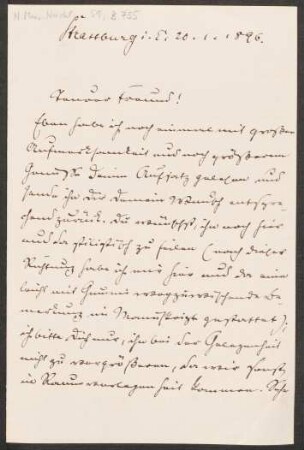 Strassburg i. E. 20. 1. 1896.
Teurer Freund!
Eben habe ich noch einmal mit großer
Aufmerksamkeit und noch größerem
Genuß Deinen Aufsatz gelesen und
sende ihn Dir Deinem Wunsch entspre-
chend zurück. Du wünschst, ihn noch hier
und da stilistisch zu feilen (nach dieser
Richtung habe ich mir hier und da eine
leicht mit Gummi wegzuwischende Be-
merkung im Manuskript gestattet);
ich bitte Dich nur, ihn bei der Gelegenheit
nicht zu vergrößern, da wir sonst
in Raumverlegenheit kommen. Sehr